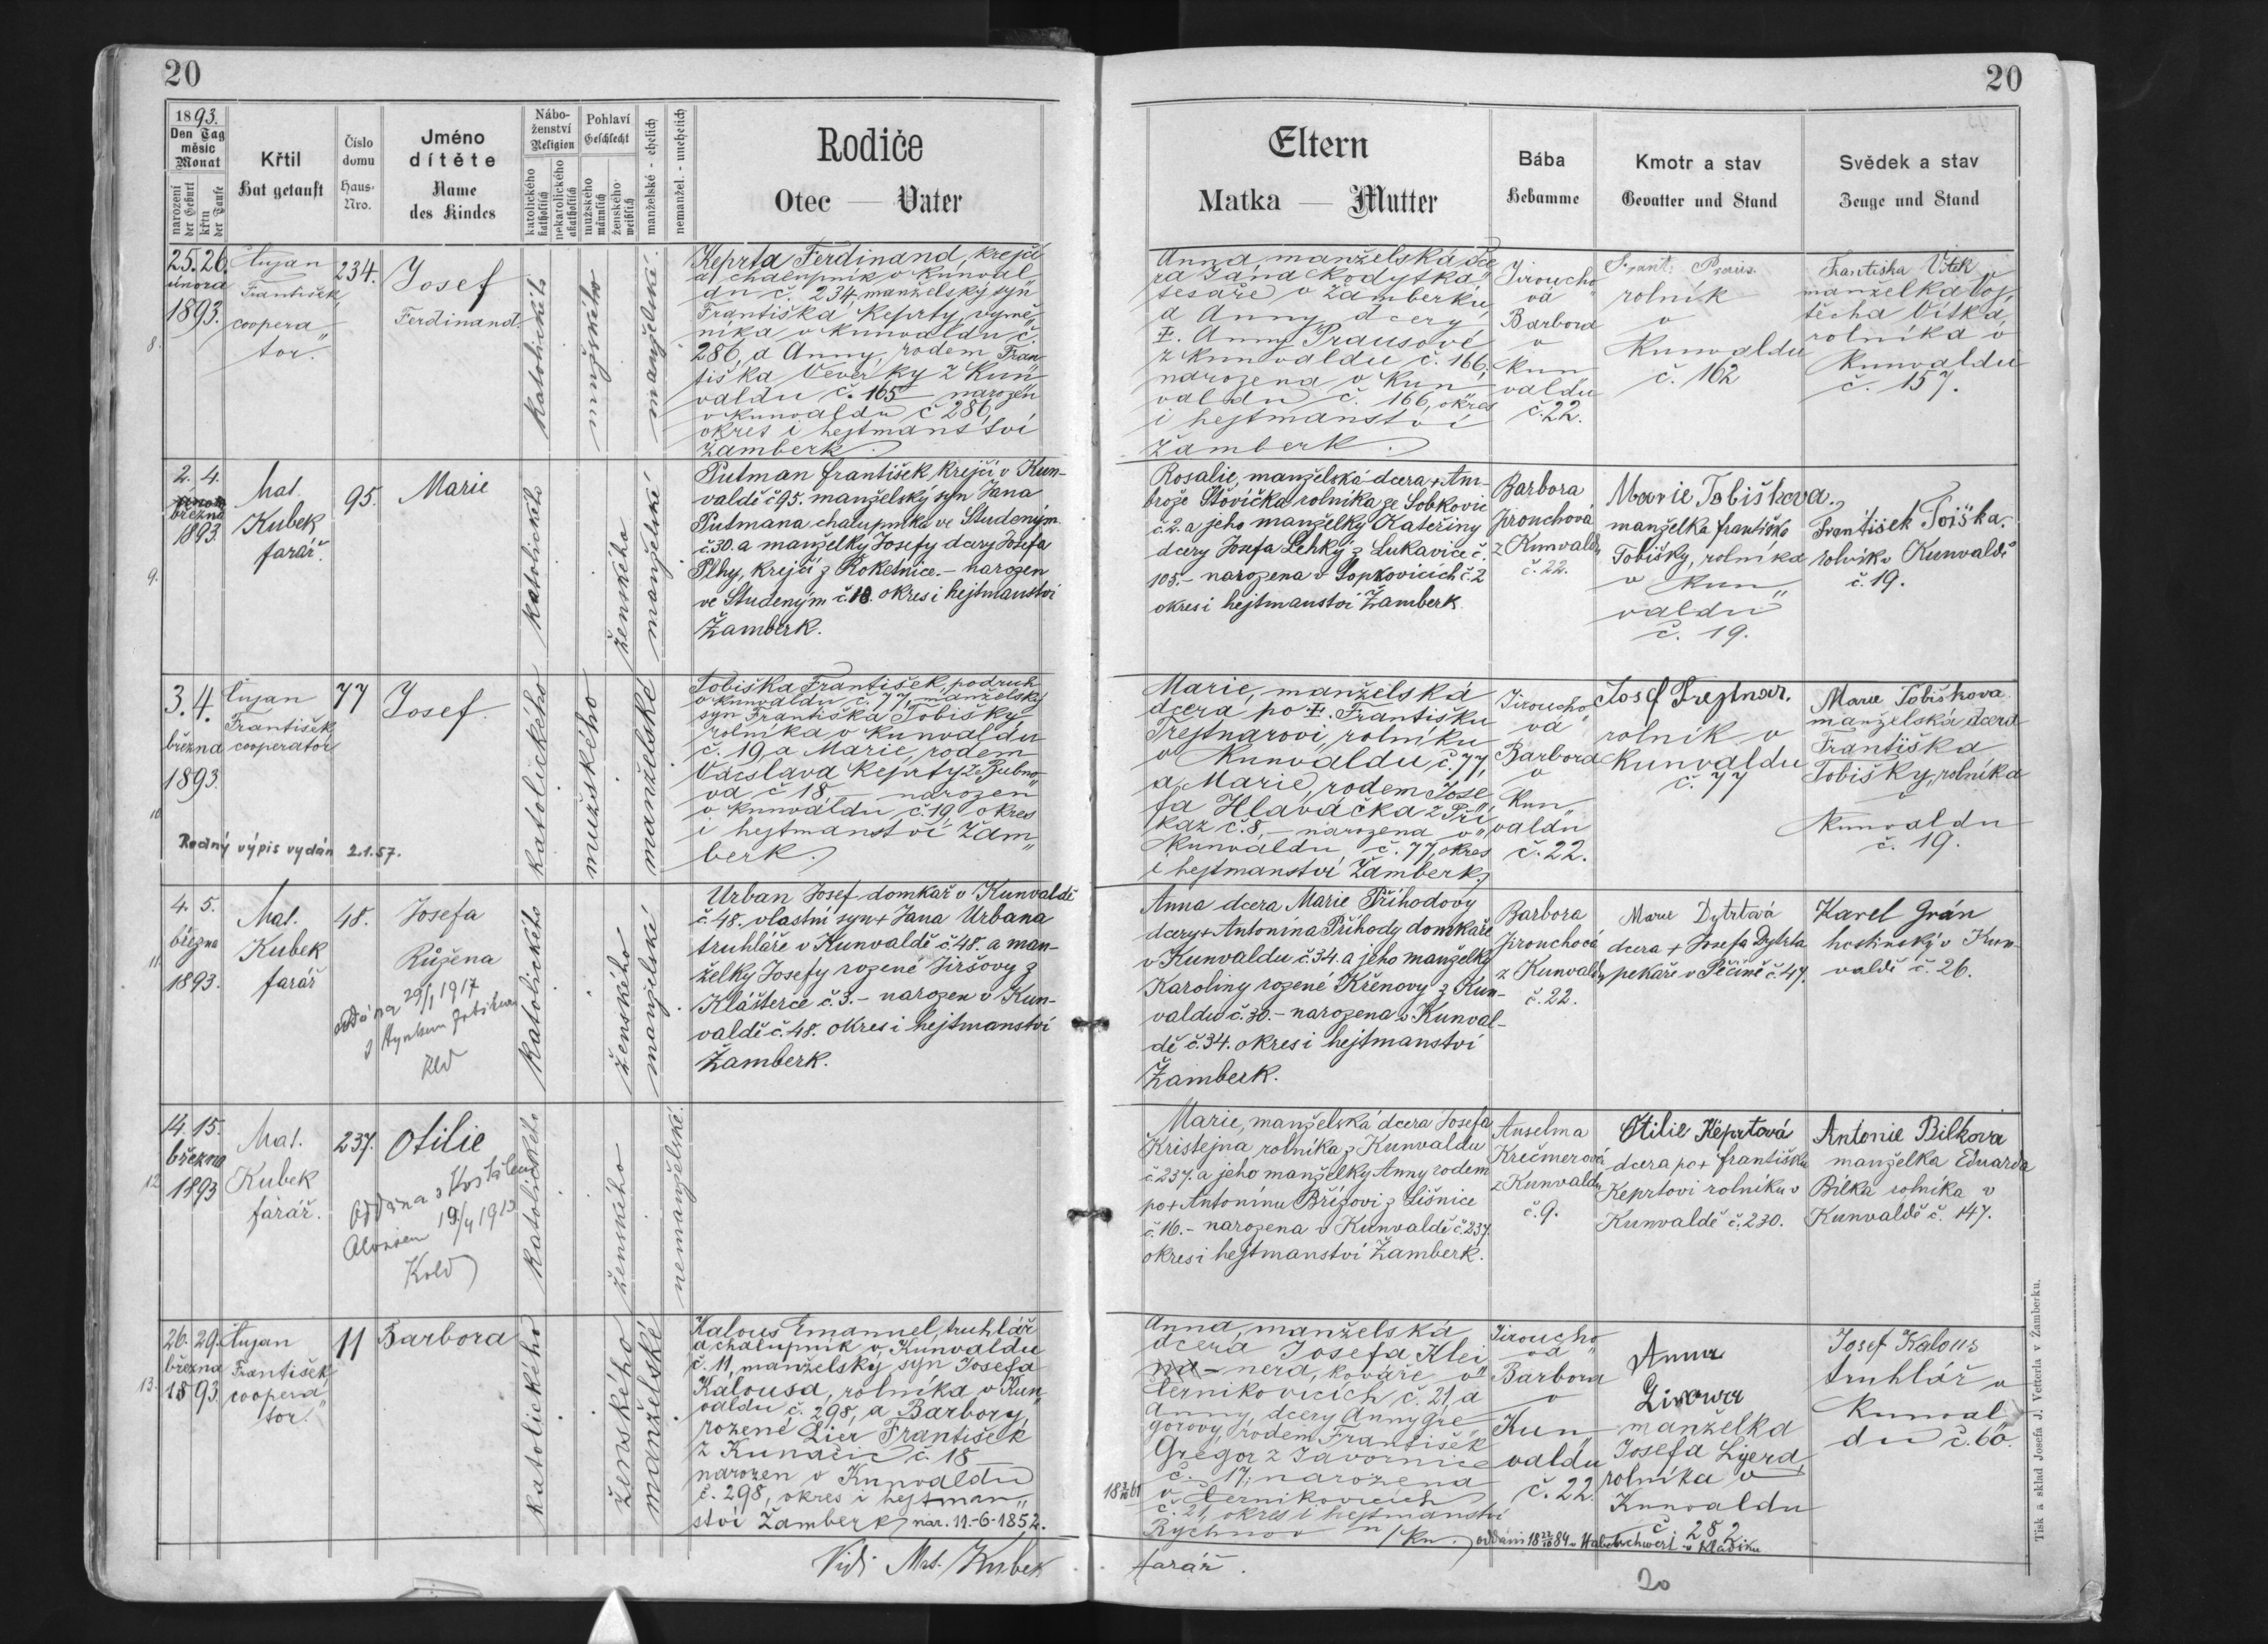 20
1893.
Den Tag
měsíc
Monat
narození
der Geburt
křtu
der Taufe
Křtil
Hat getauft
Číslo
domu
Haus-
Nro.
Jméno
dítěte
Name
des Kindes
Nábo-
ženství
Religion
katolického
katholisch
nekatolického
akatholisch
Pohlaví
Geschlecht
mužského
männlich
ženského
weiblich
manželské - ehelich
nemanžel. - unehelich
Rodiče
Otec — Vater
25. 26.
února
1893.
8.
František,
coopera„
tor.
234.
Josef
Ferdinand.
katolického
mužského
manželské.
Keprta Ferdinand, krejčí
a chalupník v Kunval„
du č. 234, manželský syn
Františka Keprty, výmě„
níka v Kunvaldu č.
286, a Anny, rodem Fran„
tiška Veverky z Kun„
valdu č. 165 — narozen
v Kunvaldu č 286,
okres i hejtmanství
Žamberk.
2. 4.
března
1893
9.
Mat.
Kubek
farář.
95.
Marie
katolického
ženského
manželské
Putman František, krejčí v Kun-
valdě č 95. manželský syn Jana
Putmana chalupníka ve Studeným
č. 30. a manželky Josefy dcery Josefa
Plhy, krejčí z Roketnice. - narozen
ve Studeným č. 18. okres i hejtmanství
Žamberk.
3. 4.
března
1893.
10
František
cooperator
77
Josef.
katolického
mužského
manželské
Tobiška František, podruh
v Kunvaldu č. 77, manželský
syn Františka Tobišky
rolníka v Kunvaldu
č. 19 a Marie, rodem
Václava Keprty ze Bubno„
va č 18 — narozen
v Kunvaldu č. 19, okres
i hejtmanství Žam„
berk.
Rodný výpis vydán 2.1.57.
4. 5.
března
1893.
11
Mat.
Kubek
farář
48.
Josefa
Růžena
oddána 29/1 1917
katolického
ženského
manželské
Urban Josef domkař v Kunvaldě
č. 48. vlastní syn + Jana Urbana
truhláře v Kunvaldě č. 48. a man-
želky Josefy rozené Jiršovy z
Klášterce č. 3. - narozen v Kun-
valdě č. 48. okres i hejtmanství
Žamberk.
14. 15.
března
1893
12
Mat.
Kubek
farář.
237.
Otilie
Oddána s
Aloisem 19/4 1913
katolického
ženského
nemanželské.
26. 29.
března
1893
13.
František
coopera„
tor.
11
Barbora
katolického
ženského
manželské
Kalous Emanuel, truhlář
a chalupník v Kunvaldu
č. 11, manželský syn Josefa
Kalousa, rolníka v Kun„
valdu č. 298, a Barbory,
rozené Lier František
z Kunačic č. 18 —
narozen v Kunvaldu
č. 298, okres i hejtman„
ství Žamberk nar. 11.-6-1852.
Vidi Mat. Kubek
20
Eltern
Matka — Mutter
Bába
Hebamme
Kmotr a stav
Gevatter und Stand
Svědek a stav
Zeuge und Stand
Anna, manželská dce„
ra Jána Kodytka,
tesaře v Žamberku,
a Anny, dcery
‡. Anny Prausové
z Kunvaldu č. 166;
narozena v Kun„
valdu č. 166, okres
i hejtmanství
Žamberk.
Jiroucho„
vá
Barbora
v
Kun„
valdu
č. 22.
rolník
v
Kunvaldu
č. 162
Františka Vítek
manželka Voj„
těcha Vítka,
rolníka v
Kunvaldu
č. 157.
Rosalie, manželská dcera + Am-
brože Šťovíčka rolníka ze Sobkovic
č. 2. a jeho manželky Kateřiny
dcery Josefa Lehký z Lukavice č.
105. - narozena v Sopkovicích č. 2
okres i hejtmanství Žamberk.
Barbora
Jirouchová
z Kunvaldu
č. 22.
Marie Tobišková,
manželka Františka
Tobišky, rolníka
v Kun„
valdu
č. 19.
František
rolník v Kunvaldě
č 19.
Marie, manželská
dcera po ‡. Františku
Trejtnarovi, rolníku
v Kunvaldu, č. 77,
a Marie, rodem Jose„
fa Hlaváčka z Při„
kaz č. 8, — narozena v
Kunvaldu, č. 77, okres
i hejtmanství Žamberk.
Jiroucho„
vá
Barbora
v
Kun„
valdu
č. 22.
Josef Trejtnar.
rolník v
Kunvaldu
č. 77
Marie Tobišková
manželská dcera
Františka
Tobišky, rolníka
v
Kunvaldu
č. 19.
Anna dcera Marie Příhodovy
dcery + Antonína Příhody domkáře
v Kunvaldu č. 34. a jeho manželky
Karoliny rozené Křenovy z Kun-
valdu č. 30. - narozena v Kunval-
dě č. 34. okres i hejtmanství
Žamberk.
Barbora
Jirouchová
z Kunvaldu
č. 22.
Marie Dytrtová
dcera + Josefa Dytrta
pekaře v Pěčíně č. 47.
Karel Grán
hostinský v Kun-
valdě č. 26.
Marie, manželská dcera Josefa
Kristejna rolníka z Kunvaldu
č 237. a jeho manželky Anny rodem
po + Antonínu Břízovi z Lišnice
č. 16. - narozena v Kunvaldě č. 237.
okres i hejtmanství Žamberk.
Anselma
Krečmerová
z Kunvaldu
č. 9.
Otilie Keprtová
dcera po + Františku
Keprtovi rolníku v
Kunvaldě č. 230.
Antonie Bílková
manželka Eduarda
Bílka rolníka v
Kunvaldě č. 147.
Anna, manželská
dcera Josefa Klei„
nera, kováře v
Černíkovicích č. 21, a
Anny, dcery Anny Gre„
gorovy, rodem František
Gregor z Javornice
č. 17; narozena
v Černíkovicích
č. 21, okres i hejtmanství
Rychnov n/Kn.
Jiroucho„
vá
Barbora
v
Kun„
valdu
č. 22.
Anna
manželka
Josefa Lijera,
rolníka v
Kunvaldu
č 282
Josef Kalous
truhlář v
Kunval„
du č. 60.
farář.
20
Tisk a sklad Josefa J. Vetterla v Žamberku.